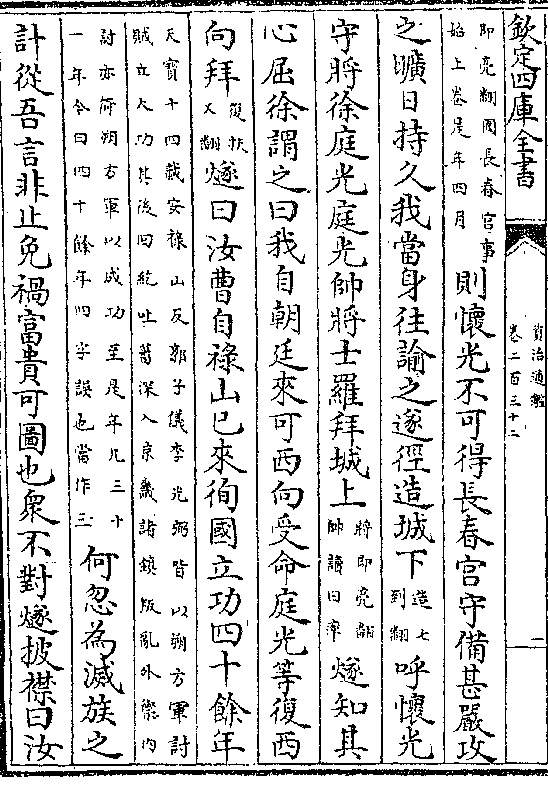 欽定四庫全書
資治通鑑
卷二百三十二
二
即亮翻圍長春宮事
始上卷是年四月
則懷光不可得長春宮守備甚嚴攻
之曠日持久我當身往諭之遂徑造城下
造七
到翻
呼懷光
守將徐庭光庭光帥將士羅拜城上
將即亮翻
帥讀曰率
燧知其
心屈徐謂之曰我自朝廷來可西向受命庭光等復西
向拜
復扶
又翻
燧曰汝曹自祿山已來徇國立功四十餘年
天寶十四載安祿山反郭子儀李光弼皆以朔方軍討
賊立大功其後回紇吐蕃深入京畿諸鎮叛亂外禦内
討亦倚朔方軍以成功至是年凡三十
一年今曰四十餘年四字誤也當作三
何忽為滅族之
計從吾言非止免禍富貴可圖也衆不對燧披襟曰汝